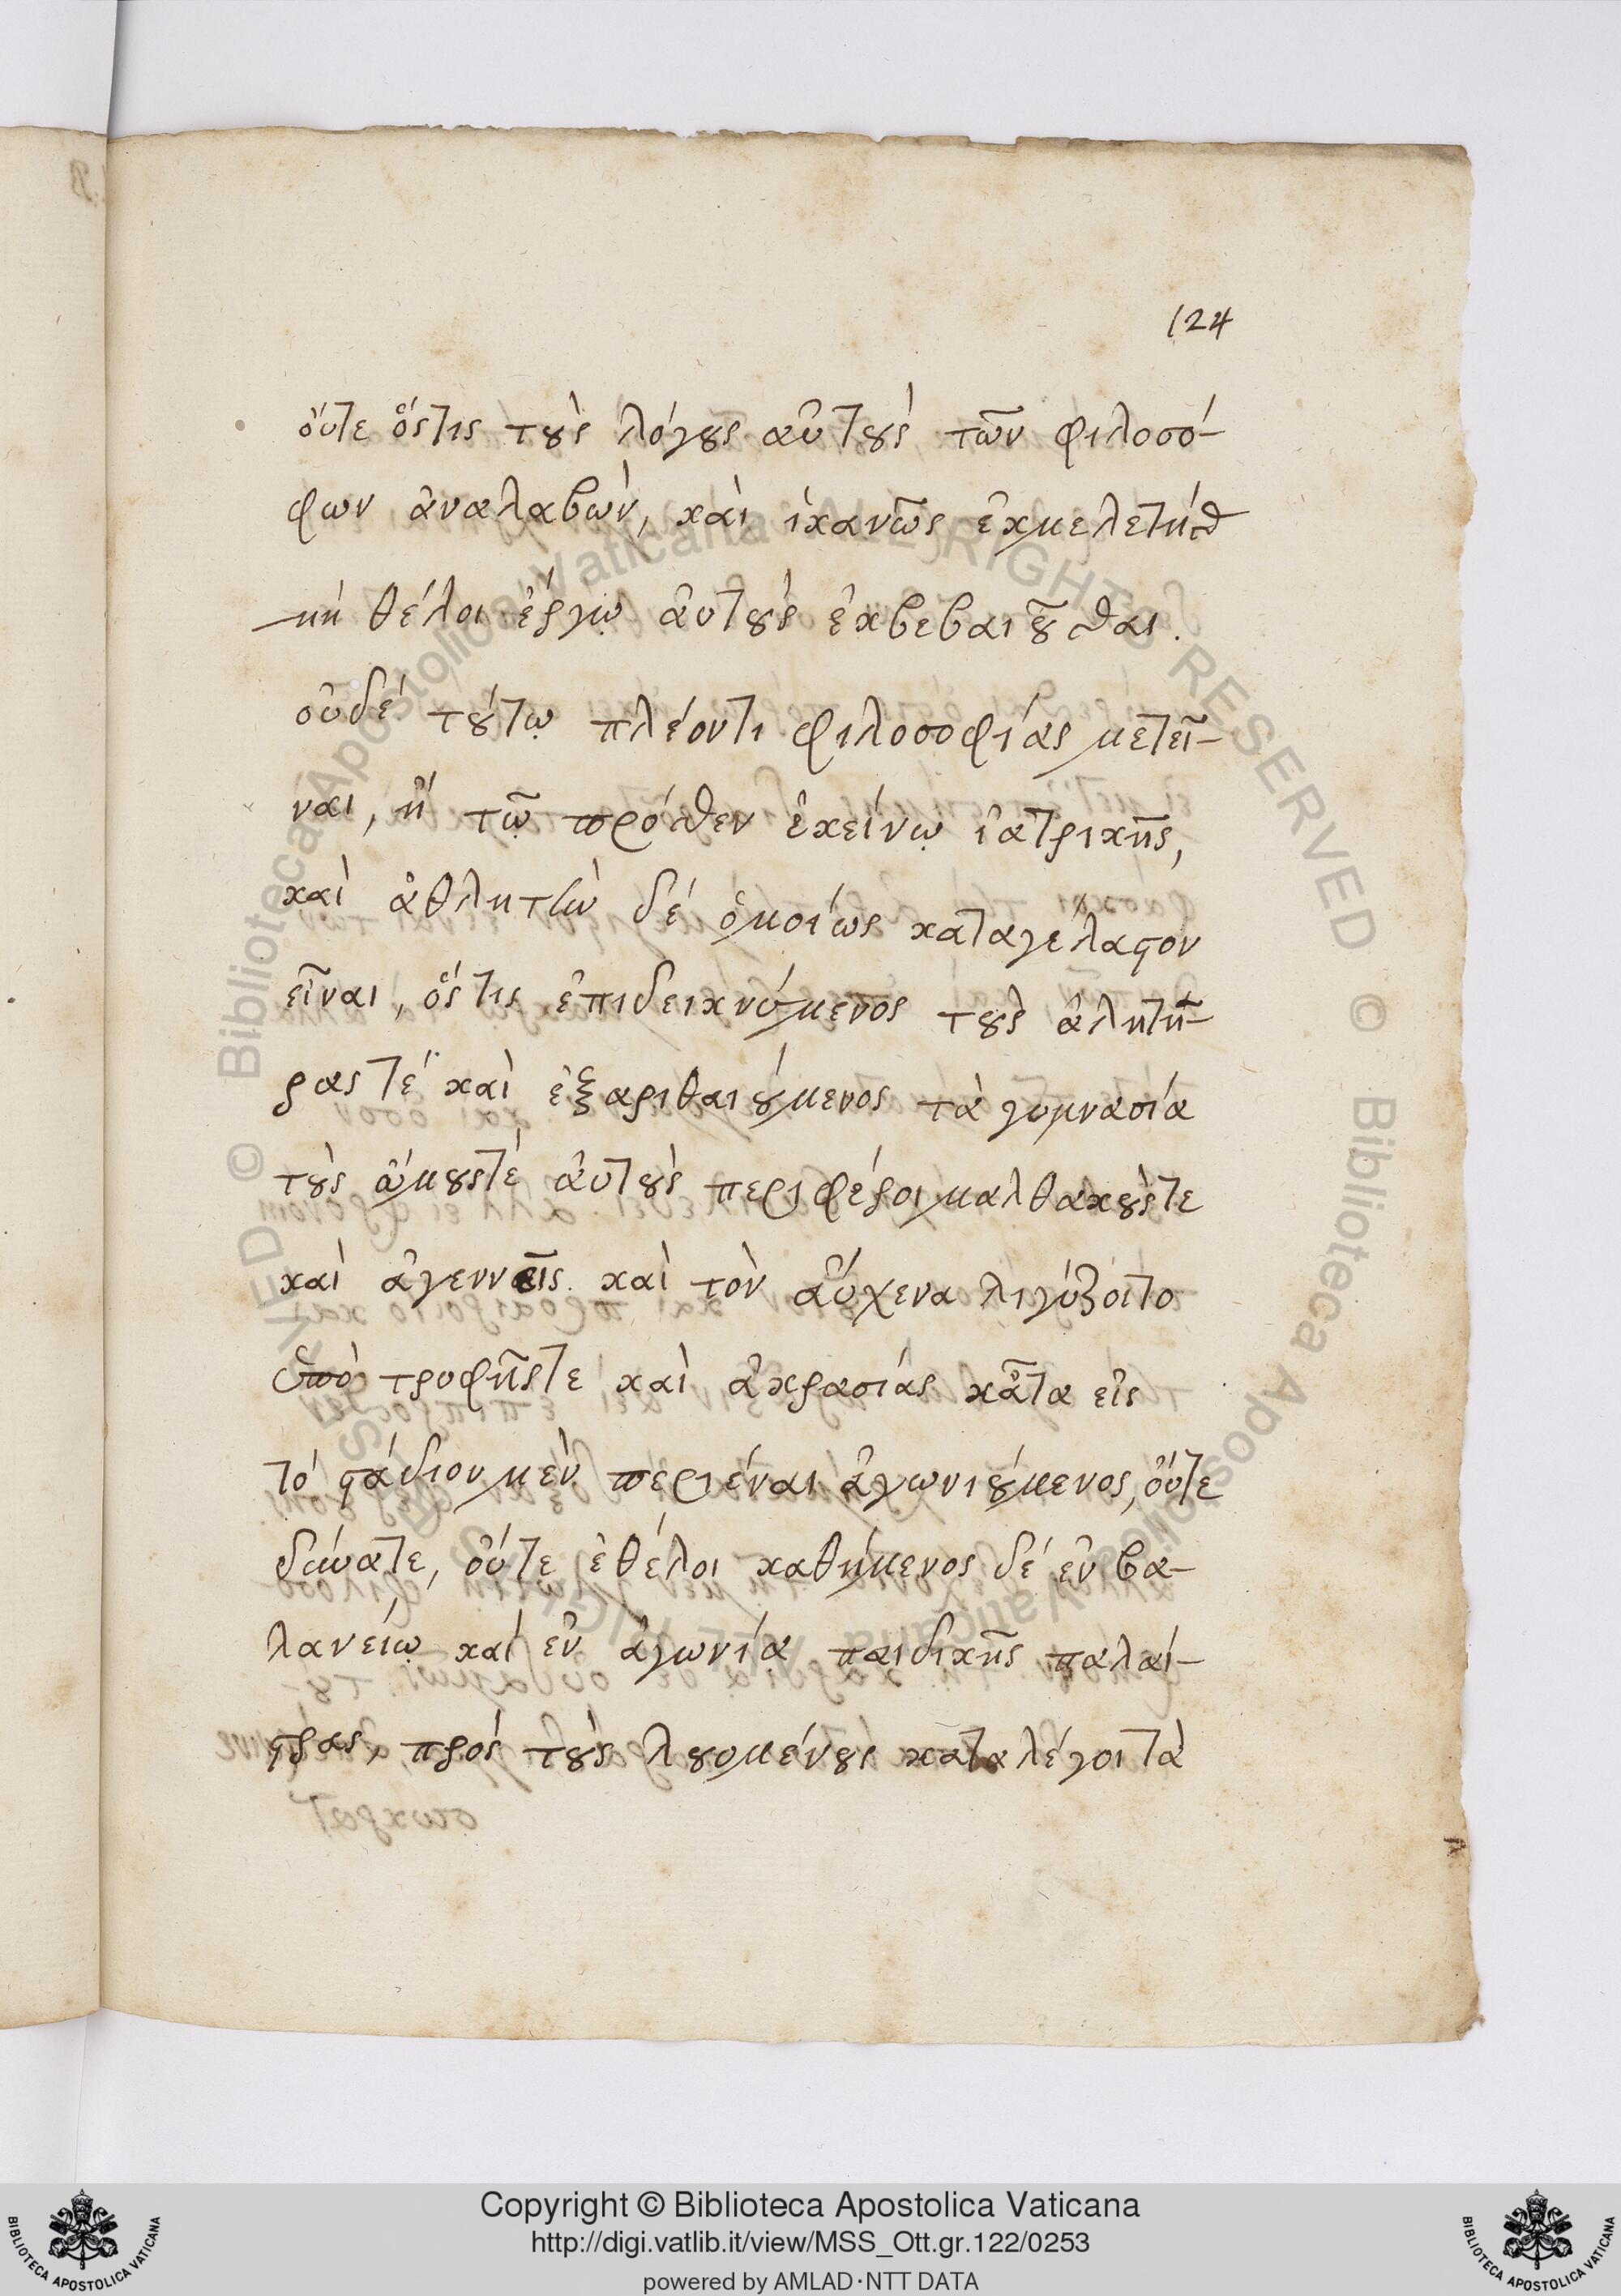 124
ὄυτε ὅστις τοὺς λόγους αὐτοὺς τῶν φιλοσό-
φων ἀναλαβὼν, καὶ ἱκανῶς ἐκμελετήσθ
μὴ θέλοι ἔργῳ ἀυτοὺς ἐκβεβαιοῦσθαι.
οὐδέ τούτῳ πλέοντι φιλοσοφίας μετεῖ-
ναι, ἢ τῷ πρόσθεν ἐκείνῳ ἰατρικῆς,
καὶ ἀθλητὴν δέ ὁμοίως καταγέλαστον
εἶναι, ὅστις ἐπιδεικνύμενος τοὺς ἀλητῆ-
ρας τέ καὶ ἐξαριθαιούμενος τὰ γυμνασία
τοὺς ὤμους τέ ἀυτοὺς περιφέροι μαλθακούς τε
καὶ ἀγεννεῖς. καὶ τὸν ἀύχενα λιγύζοιτο
ὑπὸ τρυφῆς τε καὶ ἀκρασίας κᾆτα εἰς
τό στάδιον μὲν περιέναι ἀγωνιούμενος, ὄυτε
δύνατε, ὄυτε ἐθέλοι καθήμενος δέ ἐν βα-
λανείῳ καί ἐν ἀγωνία παιδικῆς παλαί-
στρας, πρός τοὺς λουομένους καταλέγοι τὰ
Copyright © Biblioteca Apostolica Vaticana
http://digi.vatlib.it/view/MSS_Ott.gr.122/0253
powered by AMLAD·NTT DATA
BIBLIOTECA APOSTOLICA VATICANA
BIBLIOTECA APOSTOLICA VATICANA